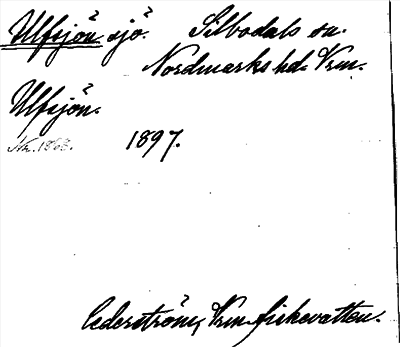 Ulfsjön sjö. Silbodals sn.
Nordmarks hd. Vrm.
Ulfsjön.
1897.
Cederström, Vrm. fiskevatten.